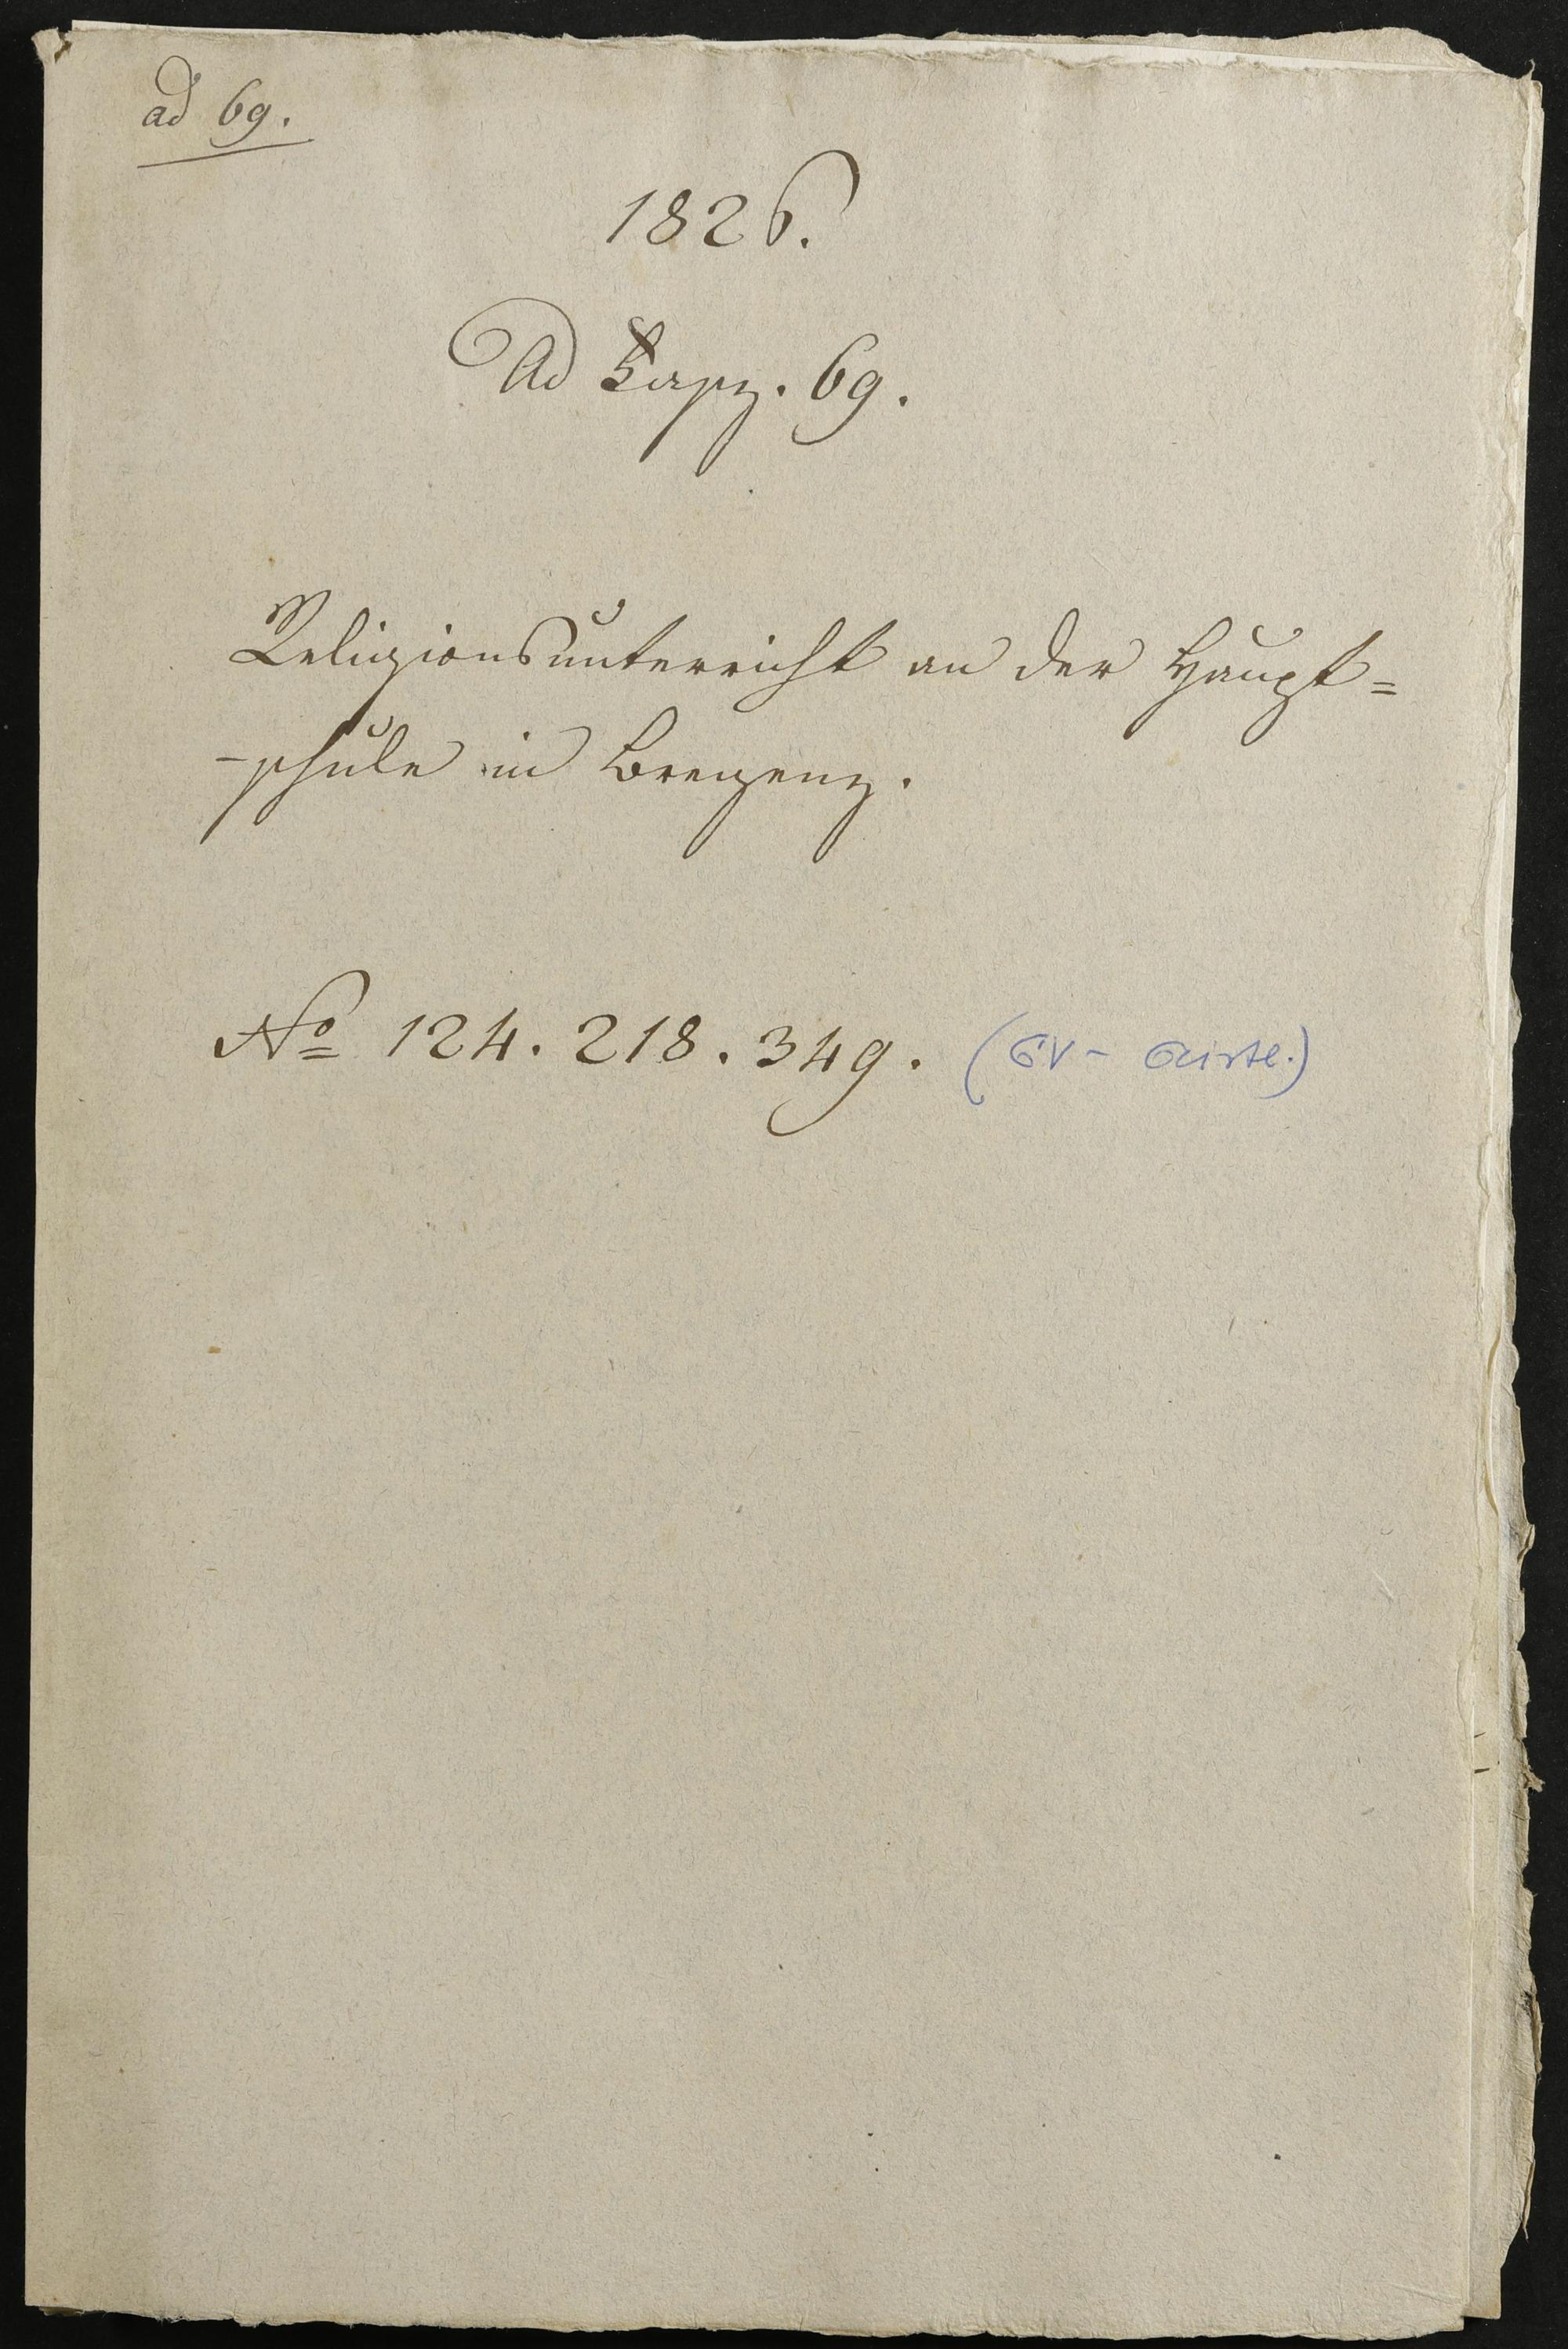 ad 69.
1826.
Ad Fasz. 69.
Religionsunterricht an der Haupt=
-schule in Bregenz.
No 124. 218. 349. (GV-